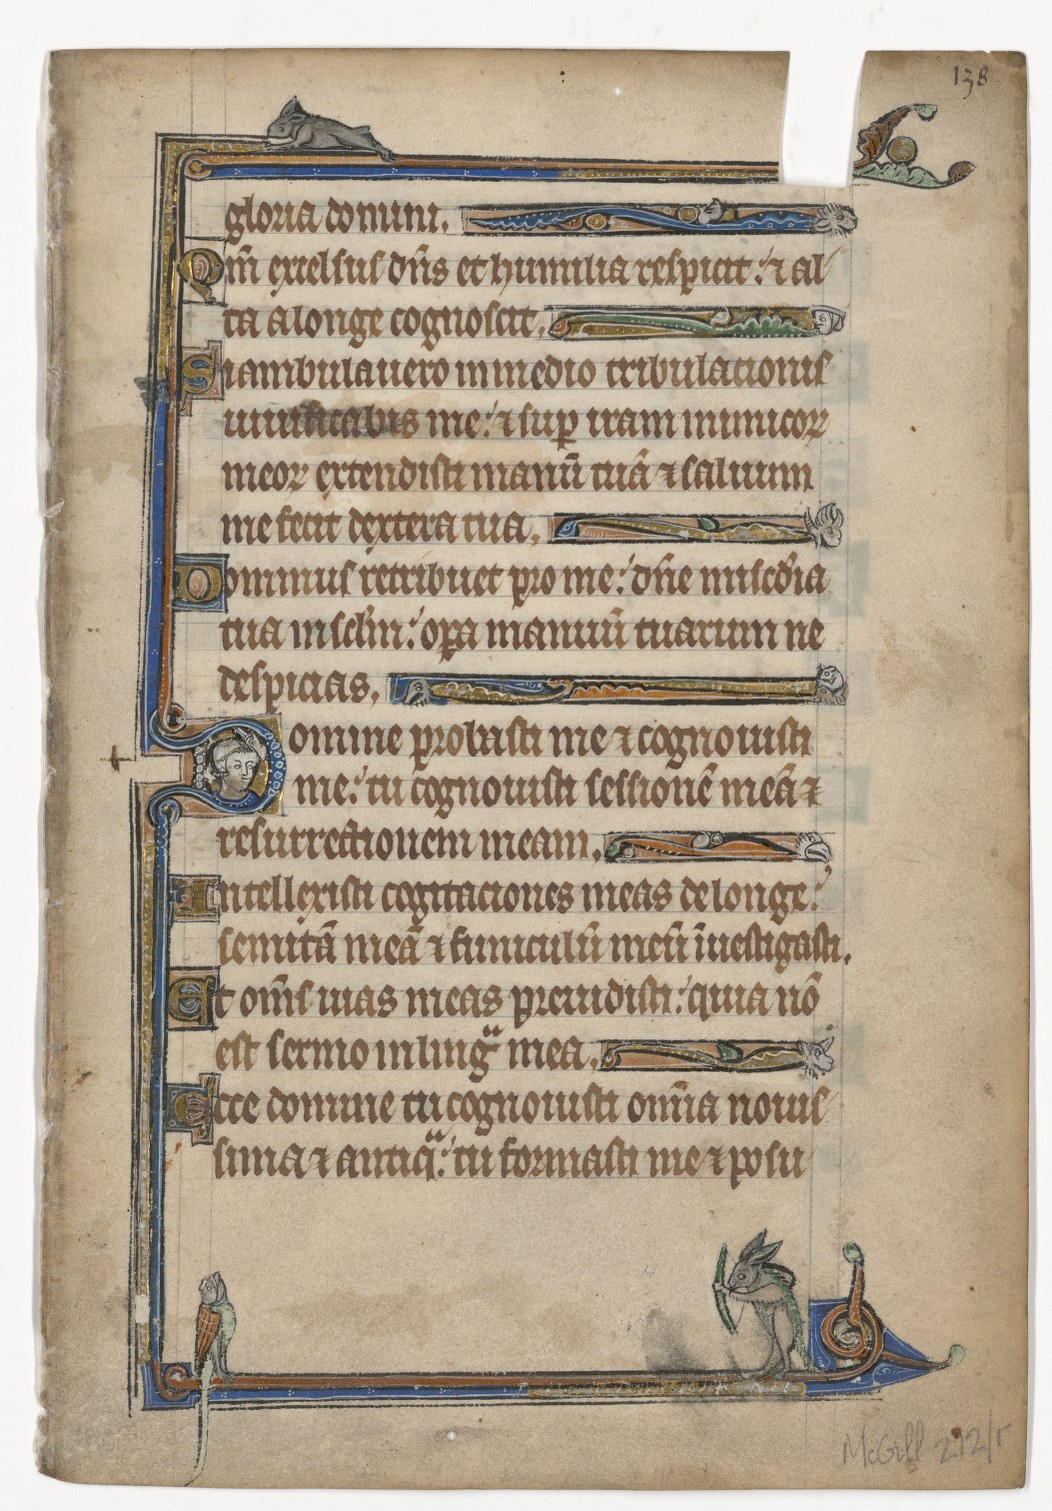 138
gloria domini.
Qm̄ excelsus dn̄s et humilia respicit: ⁊ al
ta a longe cognoscit.
Si ambulauero in medio tribulationis
uiuificabis me: ⁊ sup iram inimicoꝝ
meoꝝ extendisti manū tuā ⁊ saluum
me fecit dextera tua.
Dominus retribuet pro me: dn̄e misc̄dia
tua in sclm̄: opa manuū tuarum ne
despicias.
Domine probasti me ⁊ cognouisti
me: tu cognouisti sessionē meā ⁊
resurrectionem meam.
Intellexisti cogitaciones meas de longe:
semitā meā ⁊ funiculū meū īuestigasti.
Et om̄s uias meas preuidisti: quia nō
est sermo in lingᵃ mea.
Ecce domine tu cognouisti om̄ia nouis
sima ⁊ antiqᵃ: tu formasti me ⁊ posu
McGill 212/r